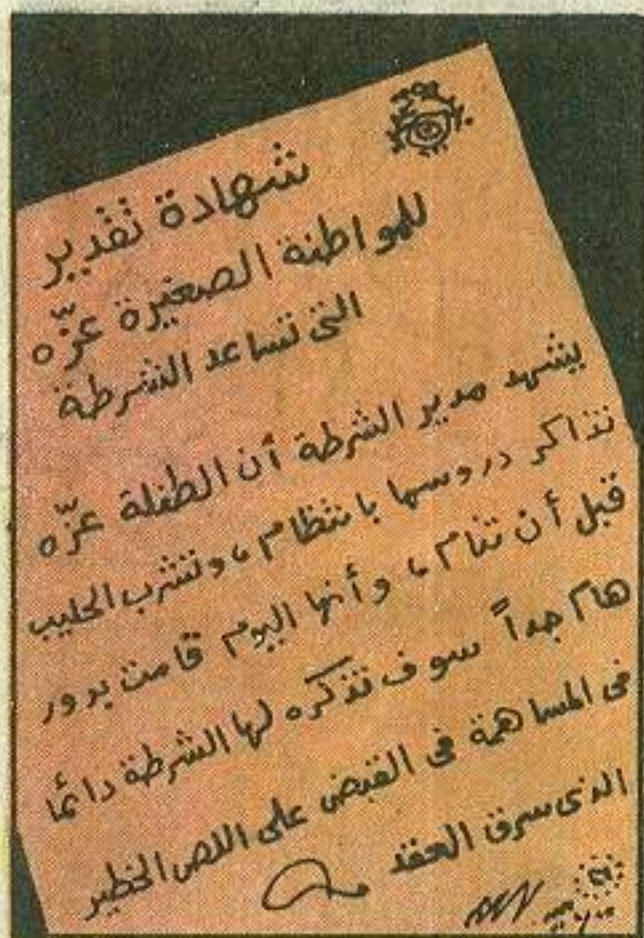 شهادة تقدير
للمواطنة الصغيرة عزّه
التى تساعد الشرطة
يشهد مدير الشرطة أن الطفلة عزّه
تذاكر دروسها بانتظام، وتشرب الحليب
قبل أن تنام، وأنها اليوم قامت بدور
هام جداً سوف تذكره لها الشرطة دائما
فى المساهمة فى القبض على اللص الخطير
الذى سرق العقد